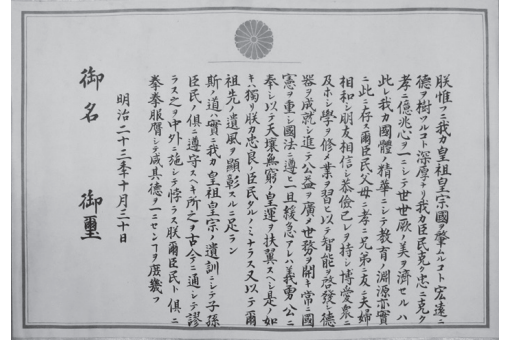 朕惟フニ我カ皇祖皇宗國ヲ肇ムルコト宏遠ニ
德ヲ樹ツルコト深厚ナリ我カ臣民克ク忠ニ克ク
孝ニ億兆心ヲ一ニシテ世世厥ノ美ヲ濟セルハ
此レ我カ國體ノ精華ニシテ教育ノ淵源亦實
ニ此ニ存ス爾臣民父母ニ孝ニ兄弟ニ友ニ夫婦
相和シ朋友相信シ恭儉己レヲ持シ博愛衆ニ
及ホシ學ヲ修メ業ヲ習ヒ以テ智能ヲ啓發シ德
器ヲ成就シ進テ公益ヲ廣メ世務ヲ開キ常ニ國
憲ヲ重シ國法ニ遵ヒ一旦緩急アレハ義勇公ニ
奉シ以テ天壤無窮ノ皇運ヲ扶翼スヘシ是ノ如
キハ獨リ朕カ忠良ノ臣民タルノミナラス又以テ爾
祖先ノ遺風ヲ顯彰スルニ足ラン
斯ノ道ハ實ニ我カ皇祖皇宗ノ遺訓ニシテ子孫
臣民ノ俱ニ遵守スヘキ所之ヲ古今ニ通シテ謬
ラス之ヲ中外ニ施シテ悖ラス朕爾臣民ト俱ニ
拳拳服膺シテ咸其德ヲ一ニセンコトヲ庶幾フ
明治二十三年十月三十日
御名 御璽